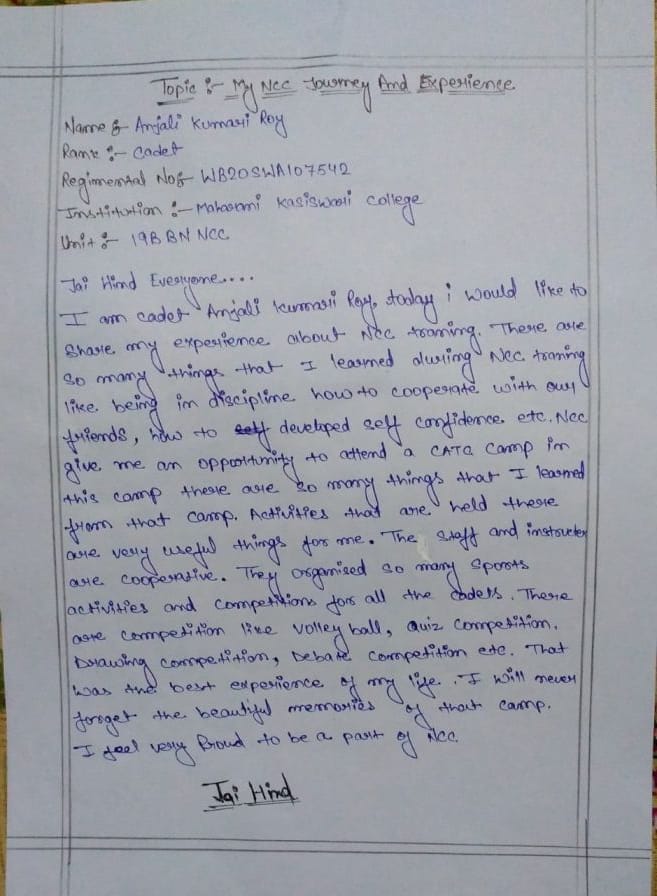 Topic :- My Ncc Journey And Experience
Name :- Anjali Kumari Roy
Rank :- Cadet
Regimental No :- WB20SWA107542
Institution :- Maharani Kasiswari College
Unit :- 19B BN NCC
Jai Hind Everyone....
I am cadet Anjali kumari Roy, today i would like to
share my experience about Ncc traning. There are
so many things that I learned during Ncc traning
like being in discipline how to cooperate with our
friends, how to self developed self confidence etc. Ncc
give me an opportunity to attend a CATC camp in
this camp there are so many things that I learned
from that camp. Activities that are held there
are very useful things for me. The staff and instructer
are cooperative. They organised so many Sports
activities and competitions for all the cadets. There
are competition like volley ball, quiz competition,
Drawing competition, Debate competition etc. That
was the best experience of my life. I will never
forget the beautiful memories of that camp.
I feel very Proud to be a part of Ncc
Jai Hind